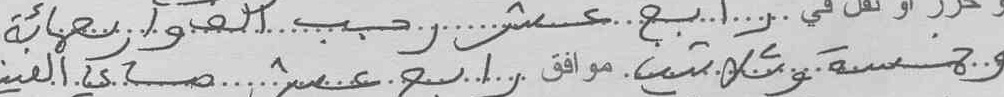 و حرر أو نقل في رابع عشر رجب الف وأربعمائة
وخمسة وثلاثين موافق رابع عشر ماي الفين